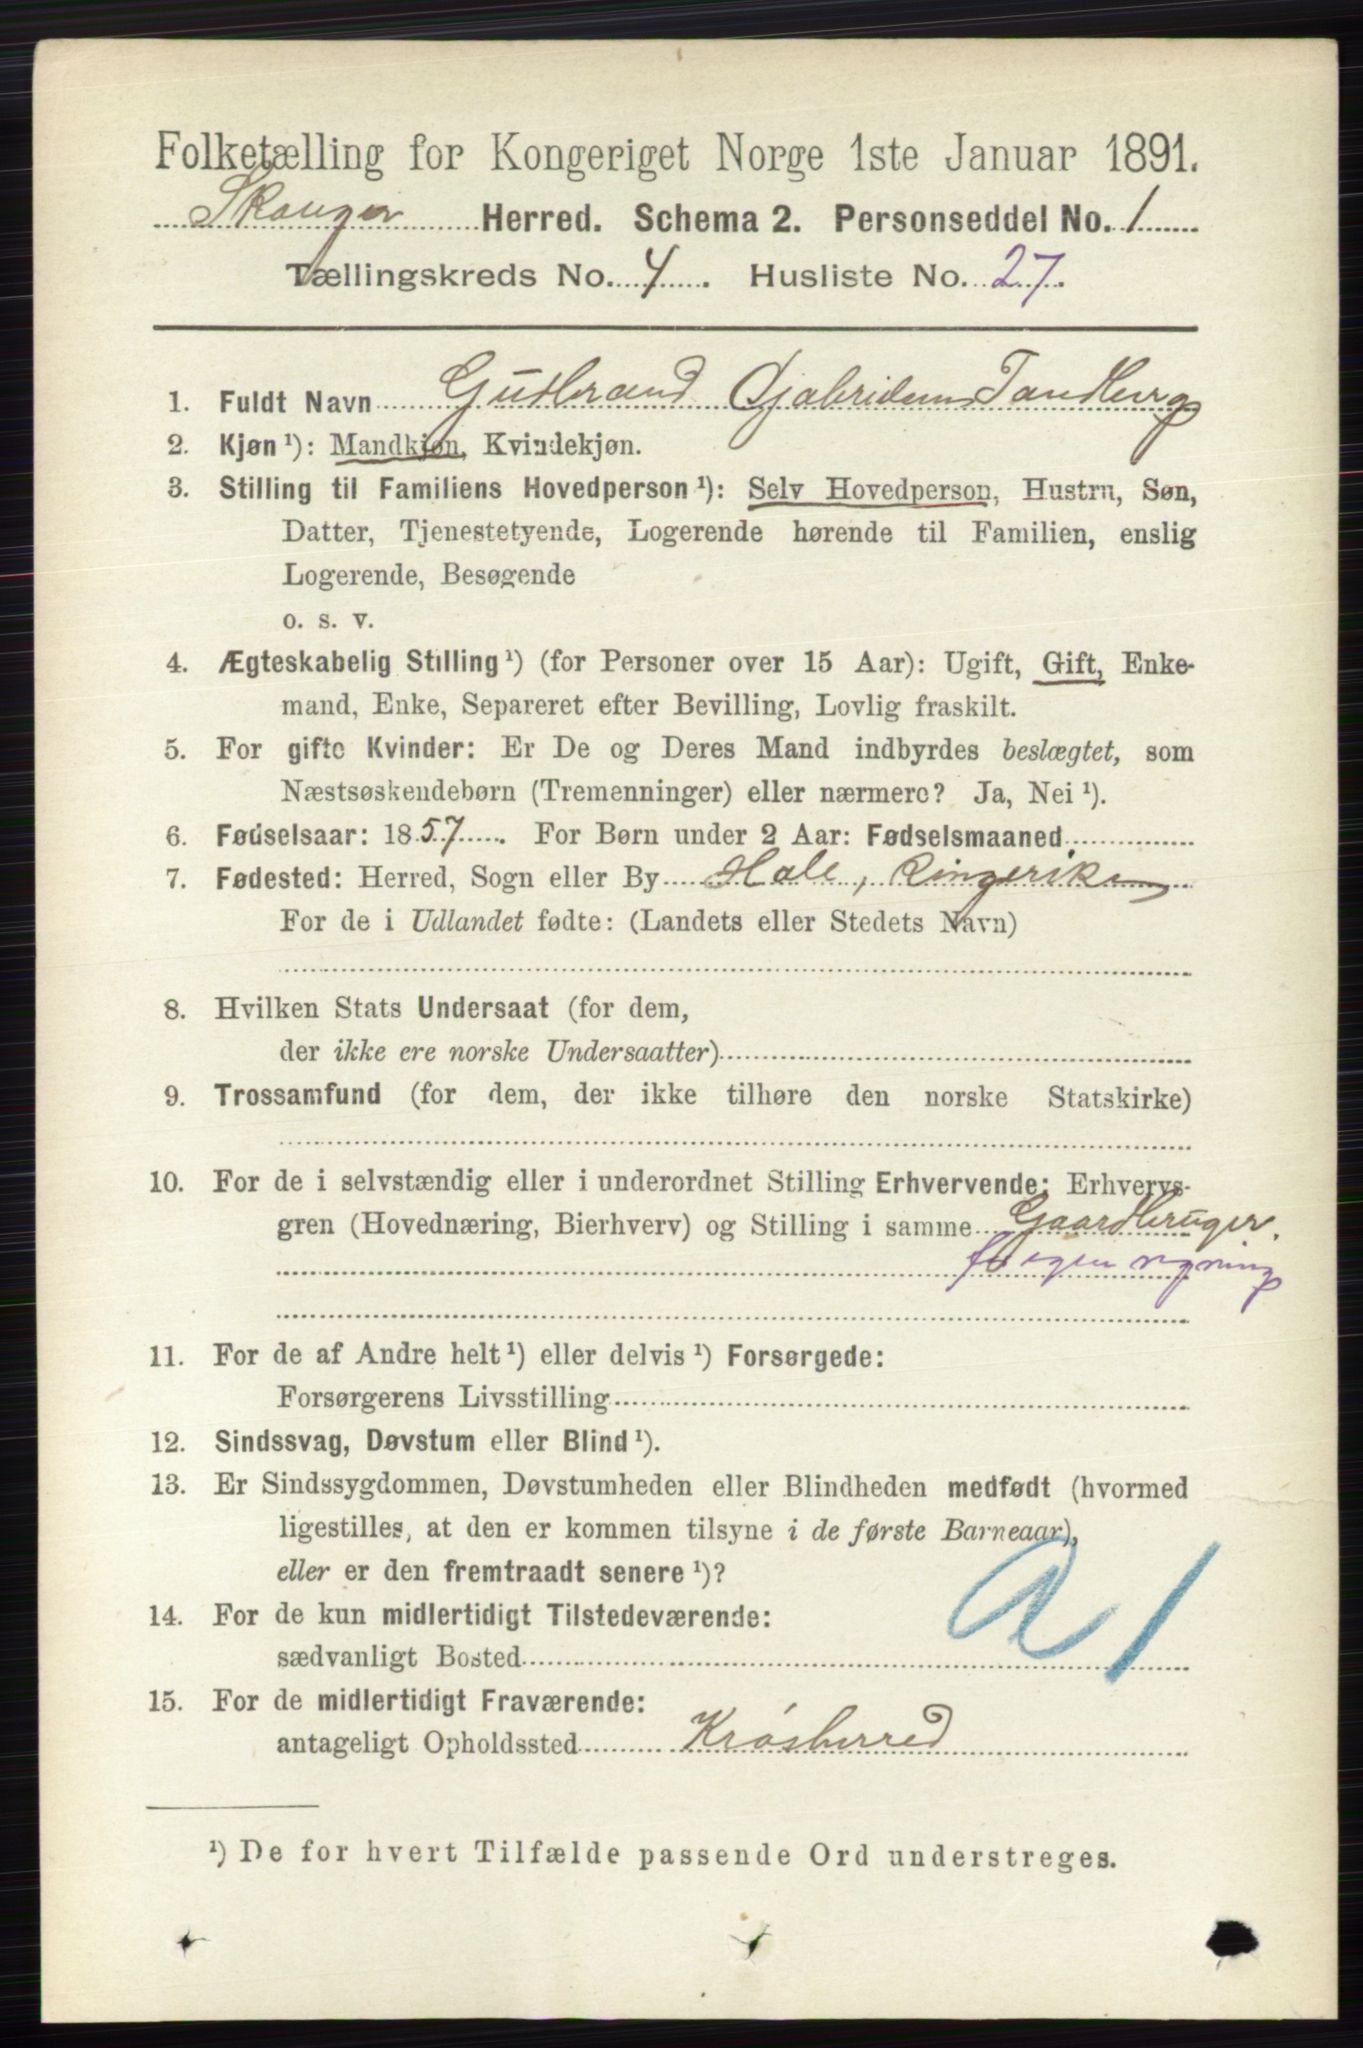 Folketælling for Kongeriget Norge 1ste Januar 1891.
Skouger Herred. Schema 2. Personseddel No. 1
Tællingskreds No. 4. Husliste No. 27.
1. Fuldt Navn Gudbrand Gjabrielsen Tandberg
2. Kjøn ¹): Mandkjøn, Kvindekjøn.
3. Stilling til Familiens Hovedperson ¹): Selv Hovedperson, Hustru, Søn,
Datter, Tjenestetyende, Logerende hørende til Familien, enslig
Logerende, Besøgende
o. s. v.
4. Ægteskabelig Stilling ¹) (for Personer over 15 Aar): Ugift, Gift, Enke-
mand, Enke, Separeret efter Bevilling, Lovlig fraskilt.
5. For gifte Kvinder: Er De og Deres Mand indbyrdes beslægtet, som
Næstsøskendebørn (Tremenninger) eller nærmere? Ja, Nei ¹).
6. Fødselsaar: 1857. For Børn under 2 Aar: Fødselsmaaned
7. Fødested: Herred, Sogn eller By Hole, Ringerike
For de i Udlandet fødte: (Landets eller Stedets Navn)
8. Hvilken Stats Undersaat (for dem,
der ikke ere norske Undersaatter)
9. Trossamfund (for dem, der ikke tilhøre den norske Statskirke)
10. For de i selvstændig eller i underordnet Stilling Erhvervende: Erhvervs-
gren (Hovednæring, Bierhverv) og Stilling i samme Gaardbruger.
for egen regning
11. For de af Andre helt ¹) eller delvis ¹) Forsørgede:
Forsørgerens Livsstilling
12. Sindssvag, Døvstum eller Blind ¹).
13. Er Sindssygdommen, Døvstumheden eller Blindheden medfødt (hvormed
ligestilles, at den er kommen tilsyne i de første Barneaar),
eller er den fremtraadt senere ¹)?
a 1
14. For de kun midlertidigt Tilstedeværende:
sædvanligt Bosted
15. For de midlertidigt Fraværende:
antageligt Opholdssted Krøsherred
¹) De for hvert Tilfælde passende Ord understreges.